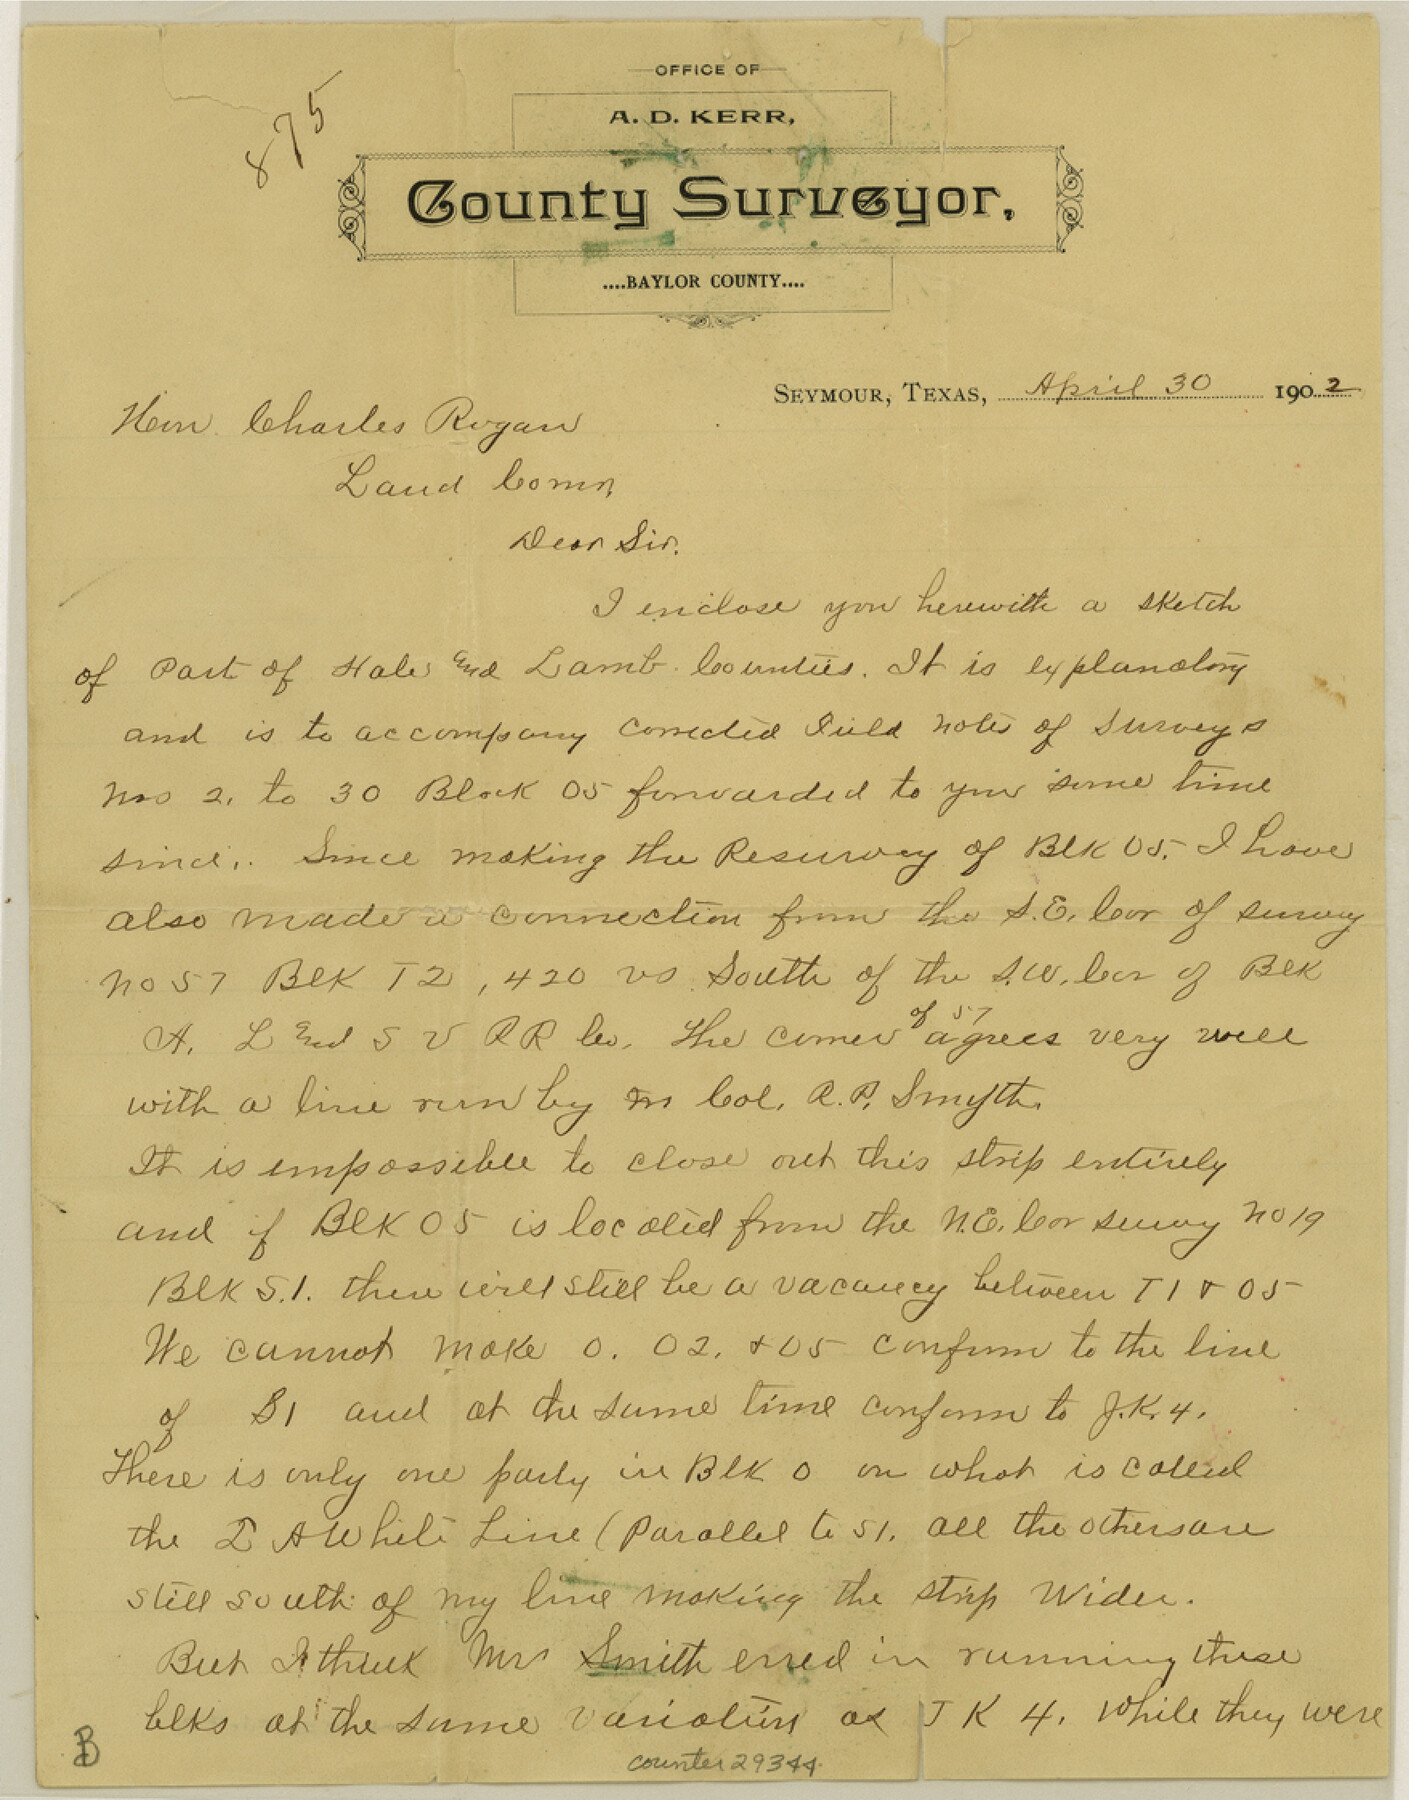 OFFICE OF
A. D. KERR,
875
County Surveyor,
....BAYLOR COUNTY....
SEYMOUR, TEXAS, April 30 1902
Hon. Charles Rogan
Land Comr,
Dear Sir.
I enclose you herewith a sketch
of Part of Hale and Lamb Counties. It is explanatory
and is to accompany corrected Field notes of surveys
Nos 2, to 30 Block O5 forwarded to you some time
since,. Since making the Resurvey of Blk O5. I have
also made a connection from the S.E. Cor of survey
No 57 Blk T2, 420 vs South of the S.W. Cor of Blk
A. L and S V R R Co. The corner of 57 agrees very well
with a line run by m Col. R. P. Smyth.
It is impossible to close out this strip entirely
and if Blk O5 is located from the N.E. Cor survey No 19
Blk S.1. there will still be a vacancy between T1 & O5
We cannot make O. O2. & O5 conform to the line
of S1 and at the same time conform to J.K. 4.
There is only one party in Blk O on what is called
the I A White Line (Parallel to S1. all the others are
still south of my line making the strip Wider.
But I think Mr Smith erred in running these
blks at the same variation as J K 4. While they were
B
counter 29344